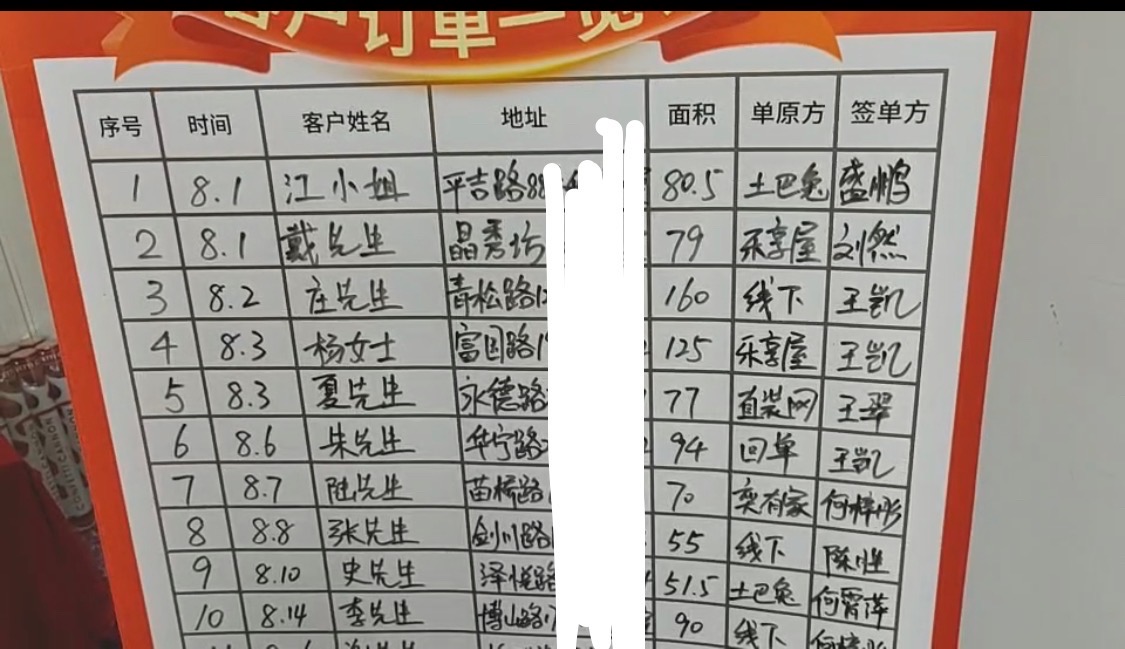 客户订单一览
序号 时间 客户姓名 地址 面积 单原方 签单方
1 8.1 江小姐 平吉路88 80.5 土巴兔 盛鹏
2 8.1 戴先生 晶秀坊 79 乐享屋 刘燃
3 8.2 庄先生 青松路1 160 线下 王凯
4 8.3 杨女士 富国路1 125 乐享屋 王凯
5 8.3 夏先生 永德路 77 直装网 王翠
6 8.6 朱先生 华宁路 94 回单 王凯
7 8.7 陆先生 苗桥路 70 奕有家 何梓彤
8 8.8 张先生 剑川路 55 线下 陈胜
9 8.10 史先生 泽悦路 51.5 土巴兔 何霄萍
10 8.14 李先生 博山路 90 线下 何梓彤